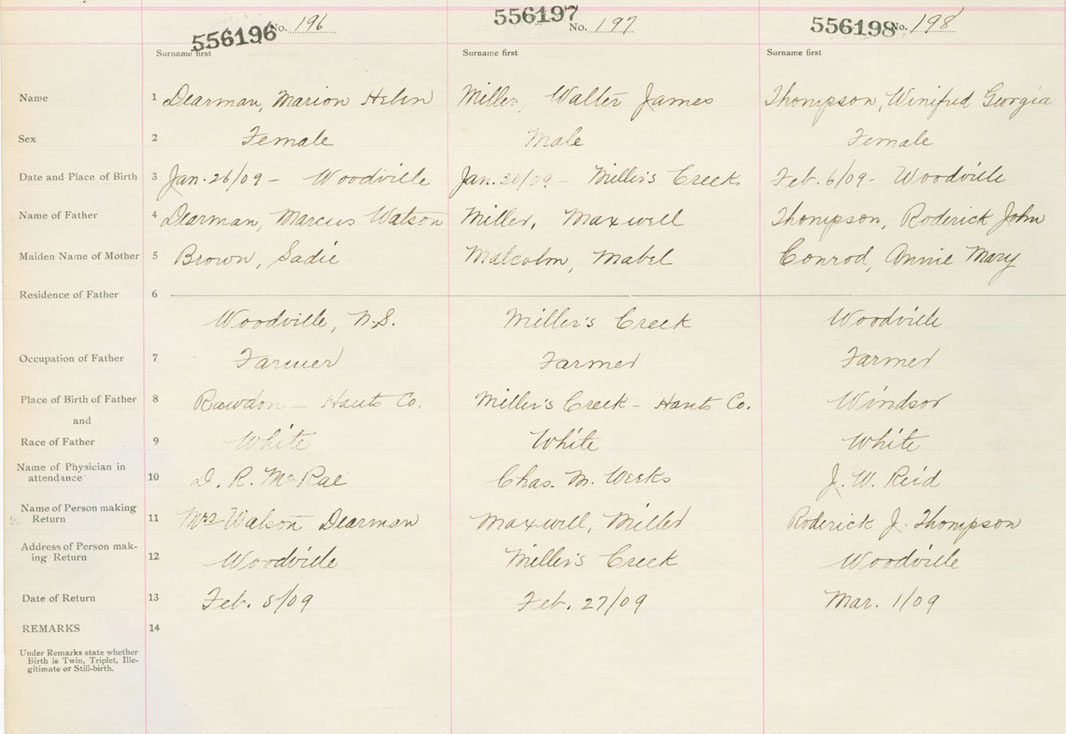 556196 No. 196 556197 No. 197 556198 No. 198
Surname first Surname first Surname first
Name 1 Dearman, Marion Helen Miller, Walter James Thompson, Winifred Georgia
Sex 2 Female Male Female
Date and Place of Birth 3 Jan. 26/09 - Woodville Jan. 30/09 - Miller's Creek Feb. 6/09 - Woodville
Name of Father 4 Dearman, Marcus Watson Miller, Maxwell Thompson, Roderick John
Maiden Name of Mother 5 Brown, Sadie Malcolm, Mabel Conrod, Annie Mary
Residence of Father 6
Woodville, N.S. Miller's Creek Woodville
Occupation of Father 7 Farmer Farmer Farmer
Place of Birth of Father 8 Rawdon - Hants Co. Miller's Creek - Hants Co. Windsor
and
Race of Father 9 White White White
Name of Physician in
attendance 10 D. R. McRae Chas. M. Weeks J. W. Reid
Name of Person making
Return 11 Mrs Watson Dearman Maxwell, Miller Roderick J. Thompson
Address of Person mak-
ing Return 12 Woodville Miller's Creek Woodville
Date of Return 13 Feb. 5/09 Feb. 27/09 Mar. 1/09
REMARKS 14
Under Remarks state whether
Birth is Twin, Triplet, Ille-
gitimate or Still-birth.